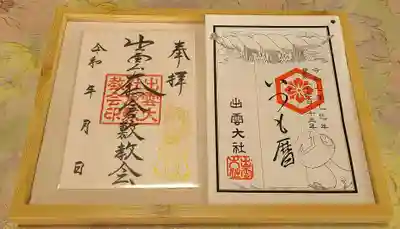 奉拝
出雲大社倉敷教会
令和　年　月　日
いづも暦
出雲大社